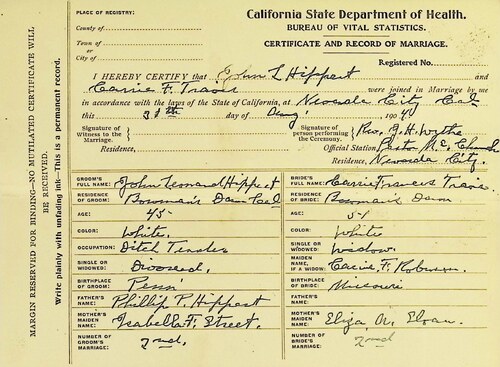 California State Department of Health.
PLACE OF REGISTRY:
BUREAU OF VITAL STATISTICS.
County of
CERTIFICATE AND RECORD OF MARRIAGE.
Town of
or
City of
Registered No.
I HEREBY CERTIFY that John L Hippert and
Carrie F. Travis were joined in Marriage by me
in accordance with the laws of the State of California, at Nevada City Cal
this day of 190
Signature of Witness to the Marriage.
Signature of person performing the Ceremony. Rev. G.H. Wythe
Official Station, Pastor M.E. Church
Residence,
Residence, Nevada City.
GROOM'S FULL NAME: John Leonard Hippert
BRIDE'S FULL NAME: Carrie Frances Travis.
RESIDENCE OF GROOM: Bowman's Dam Cal
RESIDENCE OF BRIDE: Bowman's Dam
AGE: 45
AGE: 51
COLOR: White.
COLOR: White
OCCUPATION: Ditch Tender
SINGLE OR WIDOWED: Widow.
SINGLE OR WIDOWED: Divorced.
MAIDEN NAME, IF A WIDOW: Carrie F. Robinson.
BIRTHPLACE OF GROOM:
BIRTHPLACE OF BRIDE: Missouri
FATHER'S NAME: Phillip P. Hippert
FATHER'S NAME:
MOTHER'S MAIDEN NAME: Isabella F. Street.
MOTHER'S MAIDEN NAME: Eliza A. Sloan.
NUMBER OF GROOM'S MARRIAGE: 2nd.
NUMBER OF BRIDE'S MARRIAGE: 2nd
MARGIN RESERVED FOR BINDING—NO MUTILATED CERTIFICATE WILL
BE RECEIVED.
Write plainly with unfading ink—This is a permanent record.